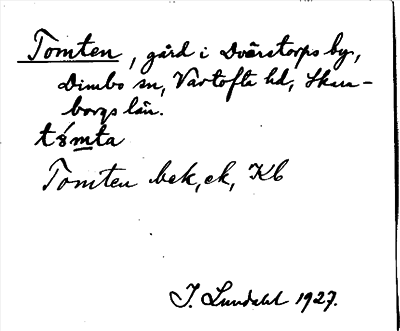 Tomten, gård i Dvärstorps by,
Dimbo sn, Vartofta hd, Skara-
borgs län.
Tomten bek, ek, Kb
I. Lundahl 1927.